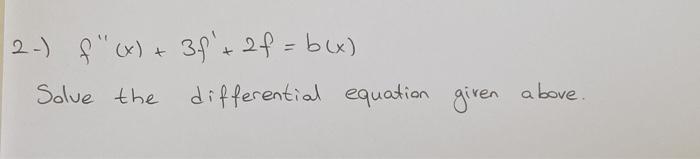 2-) f"(x) + 3f' + 2f = b(x)
Solve the differential equation given above.